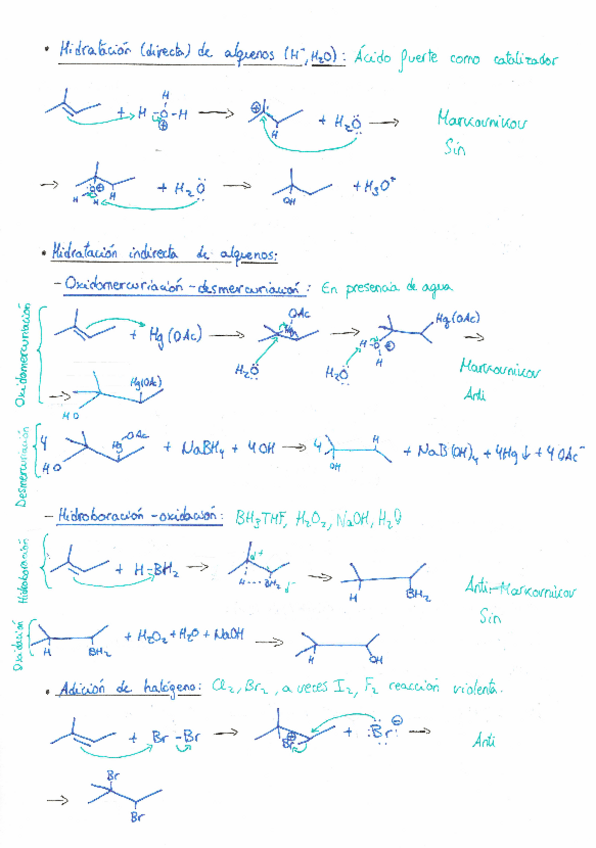 • Hidratación (directa) de alquenos (H⁺, H₂O): Ácido fuerte como catalizador
+ H-O-H → + H₂Ö → Markovnikov
H
⊕
H
Sin
→ + H₂Ö → + H₃O⁺
H H H OH
• Hidratación indirecta de alquenos:
- Oxidomercuriación - desmercuriación: En presencia de agua
Oxidomercuriación
+ Hg(OAc) → OAc Hg → Hg(OAc) →
H₂Ö H₂Ö H-O ⊕ H
Markovnikov
Anti
→ Hg(OAc)
HO
Desmercuriación
4 HO Hg OAc + NaBH₄ + 4 OH → 4 OH H + NaB(OH)₄ + 4Hg↓ + 4 OAc⁻
- Hidroboración - oxidación: BH₃THF, H₂O₂, NaOH, H₂O
Hidroboración
+ H-BH₂ → δ⁺ H---BH₂ δ⁻ → H BH₂
Anti-Markovnikov
Sin
Oxidación
H BH₂ + H₂O₂ + H₂O + NaOH → H OH
• Adición de halógeno: Cl₂, Br₂, a veces I₂, F₂ reacción violenta.
+ Br-Br → Br ⊕ + :Br: ⊖ → Anti
→ Br
Br